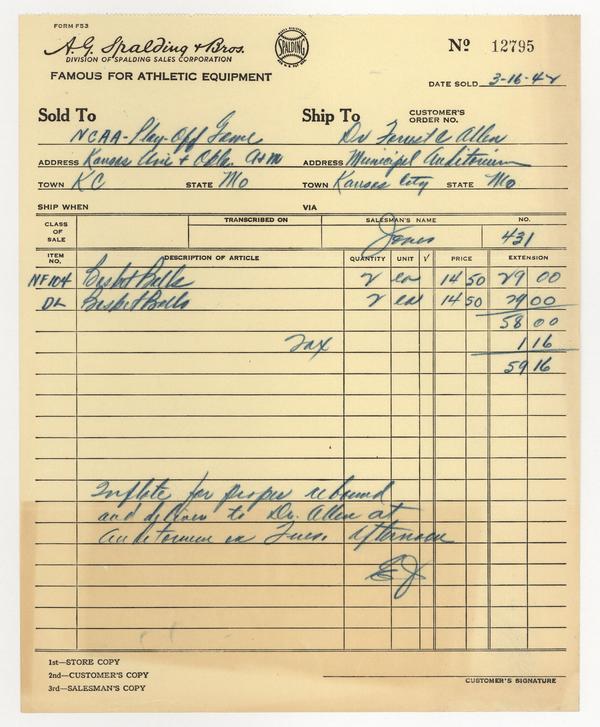 FORM F53
A. G. Spalding & Bros.
DIVISION OF SPALDING SALES CORPORATION
FAMOUS FOR ATHLETIC EQUIPMENT
SPALDING
No 12795
DATE SOLD 3-16-42
Sold To
NCAA-Play-Off Game
Ship To
CUSTOMER'S ORDER NO.
Dr Forrest C Allen
ADDRESS Kansas Univ + Okla. A+M
ADDRESS Municipal Auditorium
TOWN KC STATE Mo
TOWN Kansas City STATE Mo
SHIP WHEN
VIA
CLASS OF SALE
TRANSCRIBED ON
SALESMAN'S NAME
NO.
Jones
431
ITEM NO. DESCRIPTION OF ARTICLE QUANTITY UNIT √ PRICE EXTENSION
NF104 Basket Balls 2 ea 14 50 29 00
DL Basket Balls 2 ea 14 50 29 00
58 00
Tax 1 16
59 16
Inflate for proper rebound
and deliver to Dr. Allen at
Auditorium on Tues. afternoon
EJ
1st—STORE COPY
2nd—CUSTOMER'S COPY
3rd—SALESMAN'S COPY
CUSTOMER'S SIGNATURE